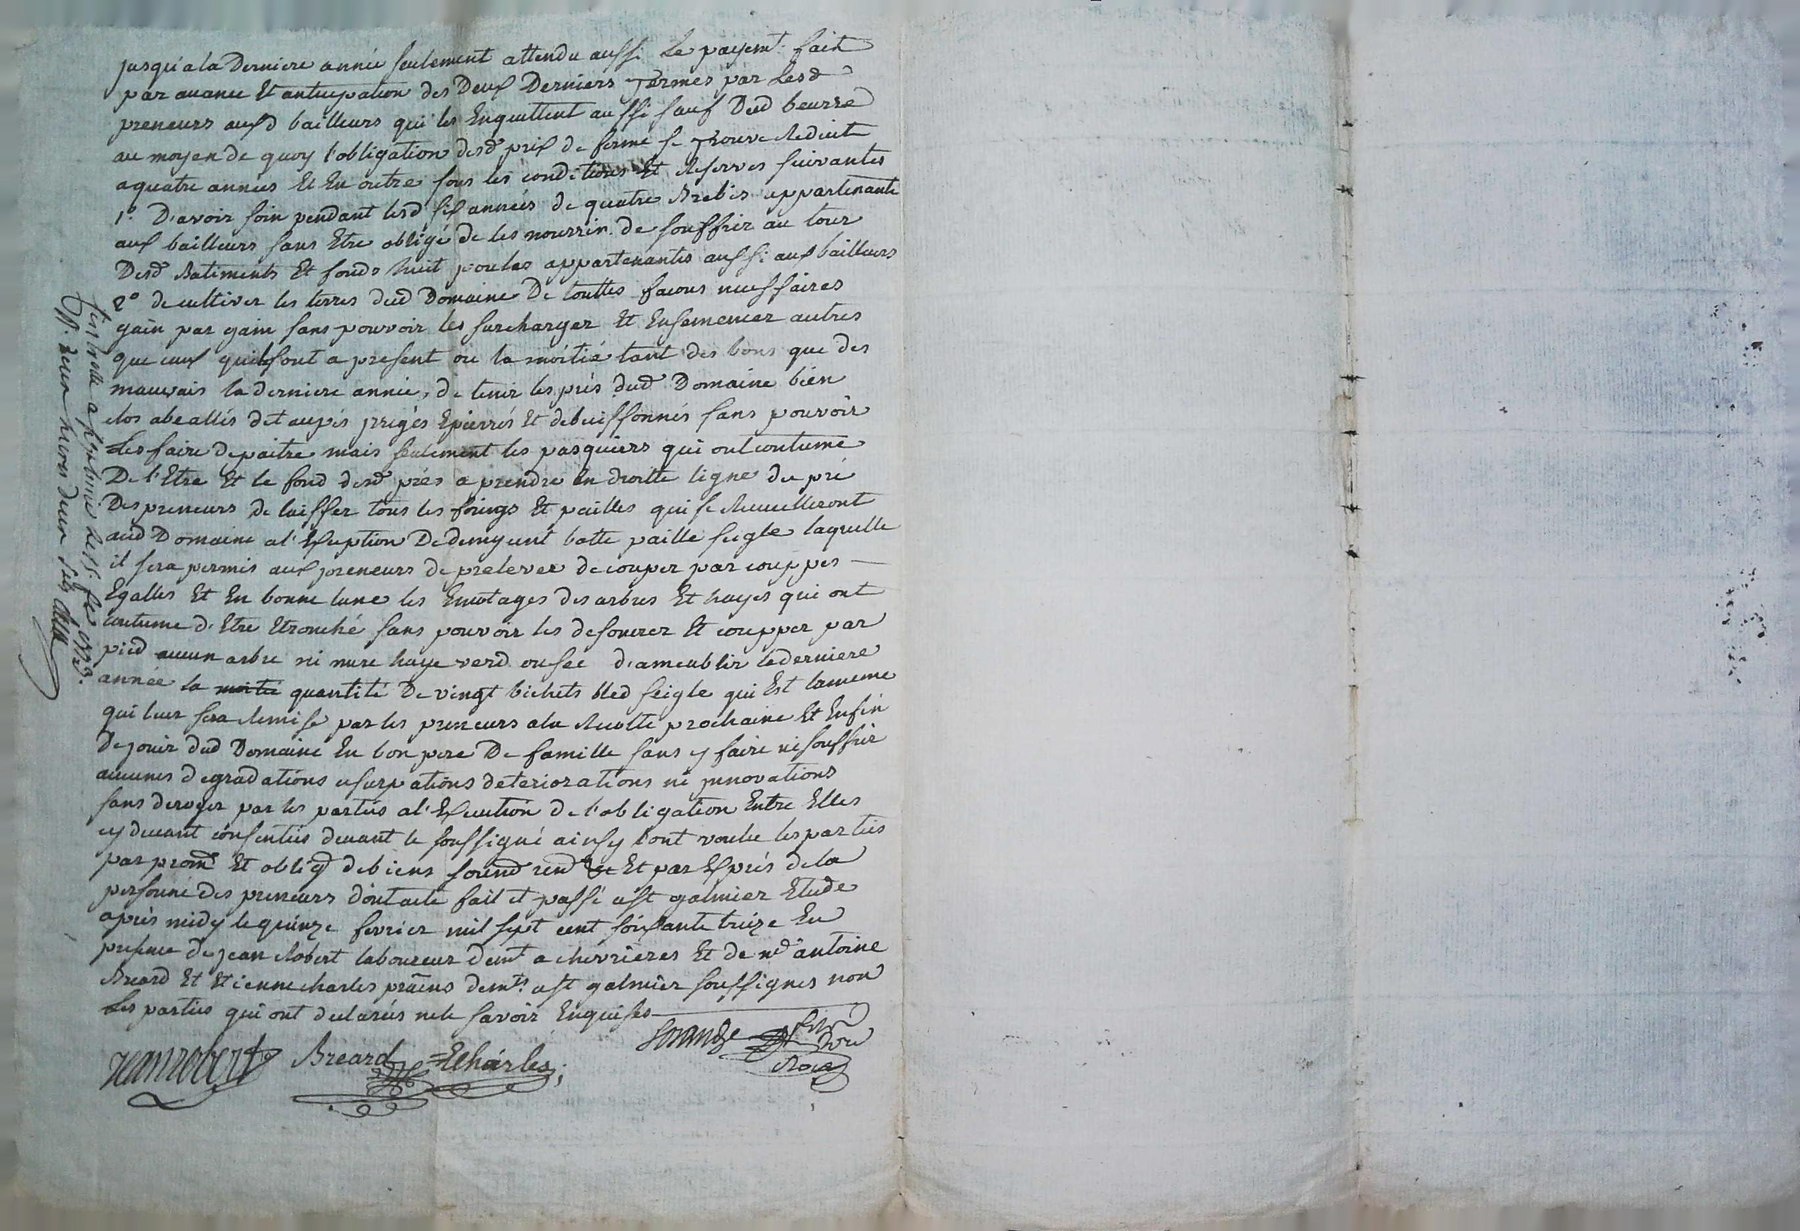 jusqu'a la Derniere année seulement attendu aussi le payemt. fait
par avance Et anticipation des Deux Derniers Termes par lesd
preneurs auxd bailleurs qui les Enquittent aussi sauf Dud beurre
au moyen de quoy l'obligation desd prix de ferme se Trouve Reduite
a quatre années Et En outre sous les conditions Et Reserves suivantes
1°. D'avoir soin pendant lesd six années de quatre Brebis appartenante
aux bailleurs sans Etre obligé de les nourrir. de souffrir au tour
Desd Batiments Et fonds huit poules appartenantes aussi aux bailleurs
2° de cultiver les terres dud Domaine De touttes facons necessaires
gain par gain sans pouvoir les surcharger Et Ensemencer autres
que ceux quils sont a present ou la moitié tant des bons que des
mauvais la derniere année, de tenir les prés dud Domaine bien
clos abeallés detaupés Epierrés Et debuissonnés sans pouvoir
les faire depaitre mais seulement les pasquiers qui ont coutume
De l'Etre Et le fond desd prés a prendre En droitte ligne du pré
Des preneurs de laisser tous les foings Et pailles qui se Recueilleront
aud Domaine a l'Exception De demy cent botte paille seigle laquelle
il sera permis aux preneurs de prelever de couper par couppes
Egalles Et En bonne lune les Emotages des arbres Et hayes qui ont
coutume d'Etre Etronché sans pouvoir les Et coupper par
pied aucun arbre ni mure haye verd ou sec d'ameublir la derniere
année la moitié quantité De vingt bichets bled seigle qui Est la meme
qui leur sera Remise par les preneurs a la Recolte prochaine Et Enfin
De jouir dud Domaine En bon pere De famille sans y faire ni souffrir
aucunes degradations usurpations deteriorations ni jnnovations
sans deroger par les parties a l'Execution de l'obligation Entre Elles
cy devant consenties devant le soussigné ainsy l'ont voulu les parties
par prom Et oblig de biens soumd rend &c Et par Exprés de la
personne des preneurs dont acte fait et passé a St galmier Etude
après midy le quinze fevrier mil sept cent soixante treize En
presence de jean Robert laboureur demt a chevrieres Et de md antoine
Breard Et Etienne charles pratiens demts a St galmier soussignes non
les parties qui ont declarés ne le savoir Enquises
jean robert Breard E Charles